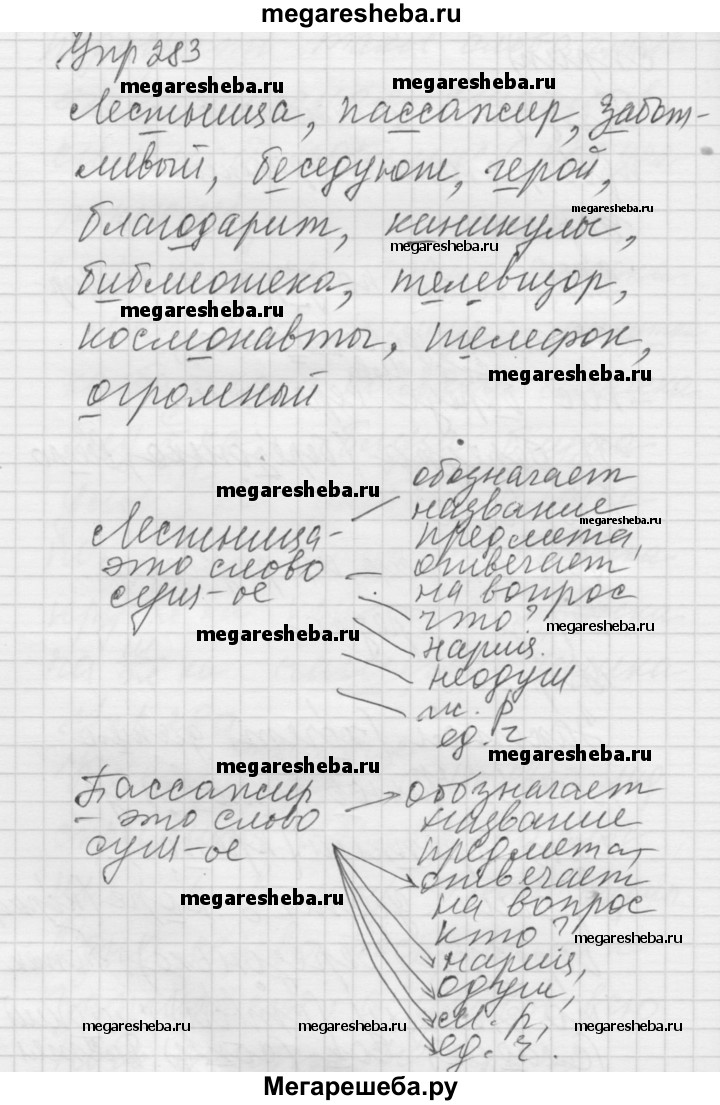 megaresheba.ru
Упр 283
megaresheba.ru
megaresheba.ru
Лестница, пассажир, забот-
ливый, беседуют, герой,
megaresheba.ru
благодарит, каникулы,
megaresheba.ru
библиотека, телевизор,
megaresheba.ru
космонавты, телефон,
megaresheba.ru
огромный
обозначает
megaresheba.ru
название
megaresheba.ru
Лестница-
предмета,
это слово
отвечает
сущ-ое
на вопрос
что?
megaresheba.ru
megaresheba.ru
нариц.
неодуш
ж. р
ед. ч
megaresheba.ru
megaresheba.ru
Пассажир
обозначает
- это слово
название
сущ-ое
предмета,
отвечает
megaresheba.ru
на вопрос
кто?
megaresheba.ru
нариц,
одуш,
м. р,
megaresheba.ru
megaresheba.ru
megaresheba.ru
ед. ч.
Мегарешеба.ру